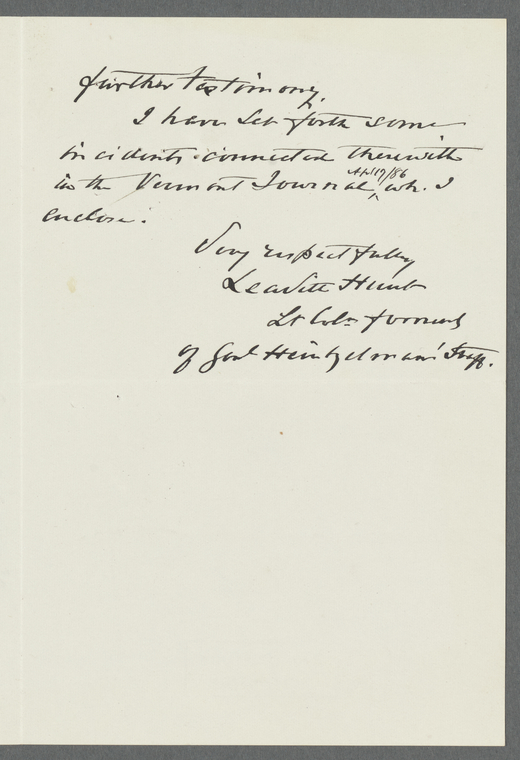 further testimony.
I have set forth some
incidents connected therewith
in the Vermont Journal, Apl 19/86 wh. I
enclose.
Very respectfully
Leavitt Hunt
Lt Col. formerly
of Genl Heintzelman's Staff.